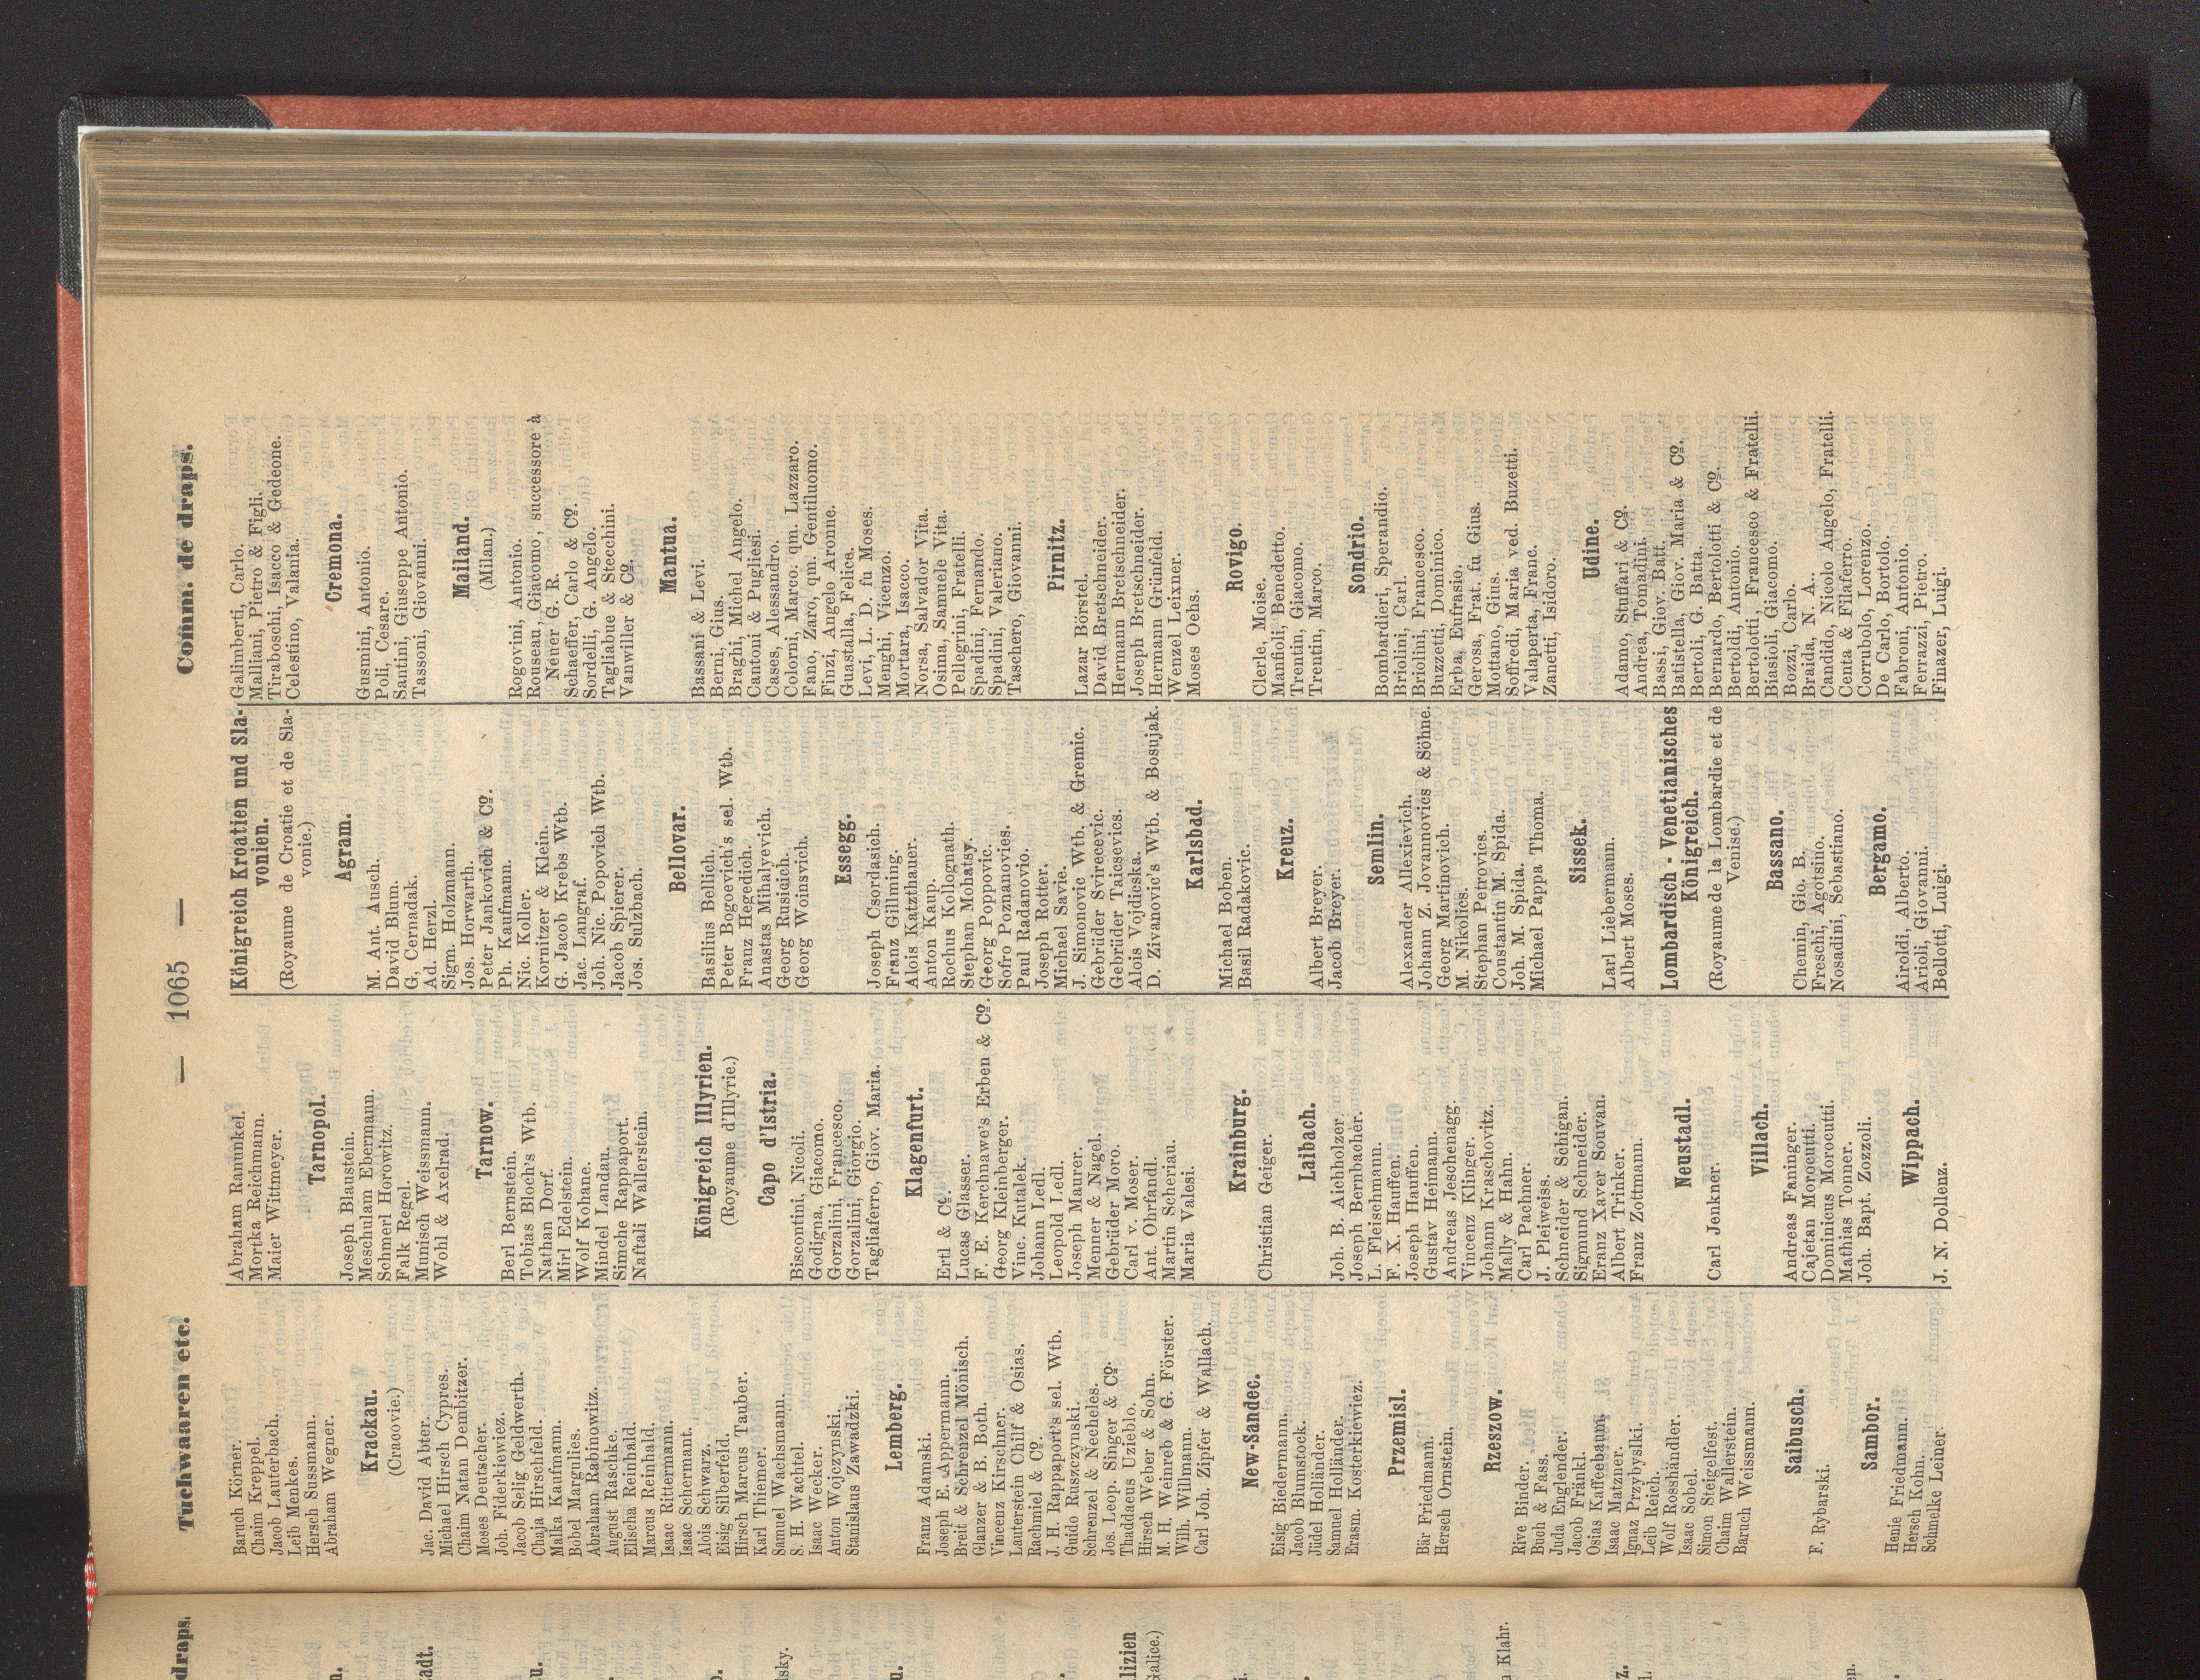 Tuchwaaren etc.
— 1065 —
Comm. de draps.
Baruch Körner.
Chaim Kreppel.
Jacob Lauterbach.
Leib Menkes.
Hersch Sussmann.
Abraham Wegner.
Krackau.
(Cracovie.)
Jac. David Abter.
Michael Hirsch Cypres.
Chaim Natan Dembitzer.
Moses Deutscher.
Joh. Fiderkiewiez.
Jacob Selig Geldwerth.
Chaja Hirschfeld.
Malka Kaufmann.
Böbel Margulies.
Abraham Rabinowitz.
August Raschke.
Elischa Reinhald.
Marcus Reinhald.
Isaac Rittermann.
Isaac Schermant.
Alois Schwarz.
Eisig Silberfeld.
Hirsch Marcus Tauber.
Karl Thiemer.
Samuel Wachsmann.
S. H. Wachtel.
Isaac Wecker.
Anton Wojczynski.
Stanislaus Zawadzki.
Lemberg.
Franz Adamski.
Joseph E. Appermann.
Breit & Schrenzel Mönisch.
Glanzer & B. Both.
Vincenz Kirschner.
Lauterstein Chilf & Osias.
Rachmiel & Co.
J. H. Rappaport's sel. Wtb.
Guido Ruszczynski.
Schrenzel & Necheles.
Jos. Leop. Singer & Co.
Thaddaeus Uzieblo.
Hirsch Weber & Sohn.
M. H. Weinreb & G. Förster.
Wilh. Willmann.
Carl Joh. Zipfer & Wallach.
New-Sandec.
Eisig Biedermann.
Jacob Blumstock.
Jüdel Holländer.
Samuel Holländer.
Erasm. Kosterkiewiez.
Przemisl.
Bär Friedmann.
Hersch Ornstein.
Rzeszow.
Rive Binder.
Buch & Fass.
Juda Englender.
Jacob Fränkl.
Osias Kaffeebaum.
Isaac Matzner.
Ignaz Przybyslki.
Leib Reich.
Wolf Rosshändler.
Isaac Sobel.
Simon Steigelfest.
Chaim Wallerstein.
Baruch Weissmann.
Saibusch.
F. Rybarski.
Sambor.
Henie Friedmann.
Hersch Kohn.
Schmelke Leiner.
Abraham Ranunkel.
Mortka Reichmann.
Maier Wittmeyer.
Tarnopol.
Joseph Blaustein.
Meschulam Ebermann.
Schmerl Horowitz.
Falk Regel.
Munisch Weissmann.
Wohl & Axelrad.
Tarnow.
Berl Bernstein.
Tobias Bloch's Wtb.
Nathan Dorf.
Mirl Edelstein.
Wolf Kohane.
Mindel Landau.
Simche Rappaport.
Naftali Wallerstein.
Königreich Illyrien.
(Royaume d'Illyrie.)
Capo d'Istria.
Biscontini, Nicoli.
Godigna, Giacomo.
Gorzalini, Francesco.
Gorzalini, Giorgio.
Tagliaferro, Giov. Maria.
Klagenfurt.
Ertl & Co.
Lucas Glasser.
F. E. Kerchnawe's Erben & Co.
Georg Kleinberger.
Vinc. Kutalek.
Johann Ledl.
Leopold Ledl.
Joseph Maurer.
Menner & Nagel.
Gebrüder Moro.
Carl v. Moser.
Ant. Ohrfandl.
Martin Scheriau.
Maria Valesi.
Krainburg.
Christian Geiger.
Laibach.
Joh. B. Aichholzer.
Joseph Bernbacher.
L. Fleischmann.
F. X. Hauffen.
Joseph Hauffen.
Gustav Heimann.
Andreas Jeschenagg.
Vincenz Klinger.
Johann Kraschovitz.
Mally & Hahn.
Carl Pachner.
J. Pleiweiss.
Schneider & Schigan.
Sigmund Schneider.
Eranz Xaver Souvan.
Albert Trinker.
Franz Zottmann.
Neustadl.
Carl Jenkner.
Villach.
Andreas Faninger.
Cajetan Morocutti.
Dominicus Morocutti.
Mathias Tonner.
Joh. Bapt. Zozzoli.
Wippach.
J. N. Dollenz.
Königreich Kroatien und Sla-
vonien.
(Royaume de Croatie et de Sla-
vonie.)
Agram.
M. Ant. Ausch.
David Blum.
G. Cernadak.
Ad. Herzl.
Sigm. Holzmann.
Jos. Horwarth.
Peter Jankovich & Co.
Ph. Kaufmann.
Nic. Koller.
Kornitzer & Klein.
G. Jacob Krebs Wtb.
Jac. Langraf.
Joh. Nic. Popovich Wtb.
Jacob Spierer.
Jos. Sulzbach.
Bellovar.
Basilius Bellich.
Peter Bogoevich's sel. Wtb.
Franz Hegedich.
Anastas Mihalyevich.
Georg Rusicich.
Georg Woinsvich.
Essegg.
Joseph Csordasich.
Franz Gillming.
Alois Katzthauer.
Anton Kaup.
Rochus Kollognath.
Stephan Mohatsy.
Georg Poppovic.
Sofro Poznanovies.
Paul Radanovio.
Joseph Rotter.
Michael Savie.
J. Simonovic Wtb. & Gremic.
Gebrüder Svirecevic.
Gebrüder Taicsevics.
Alois Vojdicska.
D. Zivanovic's Wtb. & Bosujak.
Karlsbad.
Michael Boben.
Basil Radakovic.
Kreuz.
Albert Breyer.
Jacob Breyer.
Semlin.
Alexander Allexievich.
Johann Z. Jovannovics & Söhne.
Georg Martinovich.
M. Nikolics.
Stephan Petrovics.
Constantin M. Spida.
Joh. M. Spida.
Michael Pappa Thoma.
Sissek.
Larl Liebermann.
Albert Moses.
Lombardisch - Venetianisches
Königreich.
(Royaume de la Lombardie et de
Venise.)
Bassano.
Chemin, Gio. B.
Freschi, Agotsino.
Nosadini, Sebastiano.
Bergamo.
Airoldi, Alberto.
Arioli, Giovanni.
Bellotti, Luigi.
Galimberti, Carlo.
Malliani, Pietro & Figli.
Tiraboschi, Isacco & Gedeone.
Celestino, Valania.
Cremona.
Gusmini, Antonio.
Poli, Cesare.
Santini, Giuseppe Antonio.
Tassoni, Giovanni.
Mailand.
(Milan.)
Rogovini, Antonio.
Rouseau, Giacomo, successore à
Neuer G. R.
Schaeffer, Carlo & Co.
Sordelli, G. Angelo.
Tagliabue & Stecchini.
Vanwiller & Co.
Mantua.
Bassani & Levi.
Berni, Gius.
Braghi, Michel Angelo.
Cantoni & Pugliesi.
Cases, Alessandro.
Colorni, Marco. qm. Lazzaro.
Fano, Zaro, qm. Gentiluomo.
Finzi, Angelo Aronne.
Guastalla, Felice.
Levi, L. D. fu Moses.
Menghi, Vicenzo.
Mortara, Isacco.
Norsa, Salvador Vita.
Osima, Samuele Vita.
Pellegrini, Fratelli.
Spadini, Fernando.
Spadini, Valeriano.
Taschero, Giovanni.
Pirnitz.
Lazar Börstel.
David Bretschneider.
Hermann Bretschneider.
Joseph Bretschneider.
Hermann Grünfeld.
Wenzel Leixner.
Moses Oehs.
Rovigo.
Clerle, Moise.
Manfioli, Benedetto.
Trentin, Giacomo.
Trentin, Marco.
Sondrio.
Bombardieri, Sperandio.
Briolini, Carl.
Briolini, Francesco.
Buzzetti, Dominico.
Erba, Eufrasio.
Gerosa, Frat. fu Gius.
Mottano, Gius.
Soffredi, Maria ved. Buzetti.
Valaperta, Franc.
Zanetti, Isidoro.
Udine.
Adamo, Stuffari & Co.
Andrea, Tomadini.
Bassi, Giov. Batt.
Batistella, Giov. Maria & Co.
Bertoli, G. Batta.
Bernardo, Bertolotti & Co.
Bertoldi, Antonio.
Bertolotti, Francesco & Fratelli.
Biasioli, Giacomo.
Bozzi, Carlo.
Braida, N. A.
Candido, Nicolo Angelo, Fratelli.
Centa & Filaferro.
Corrubolo, Lorenzo.
De Carlo, Bortolo.
Fabroni, Antonio.
Ferrazzi, Pietro.
Finazer, Luigi.
draps.
adt.
sky.
lizien
Galice.)
n Klahr.